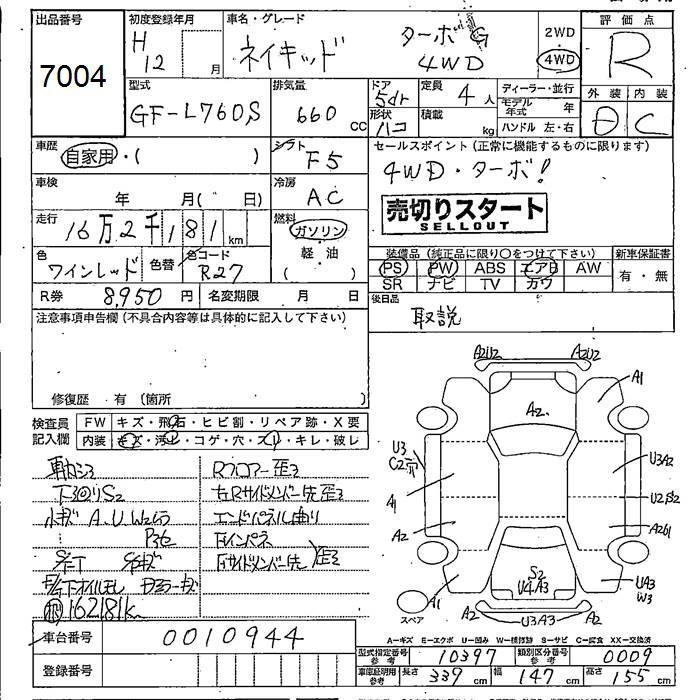 出品番号
7004
初度登録年月
H 12 月
車名・グレード
ネイキッド ターボ G 4WD
2WD
4WD
評価点
R
型式
GF-L760S
排気量
660 cc
ドア
5dr
形状
ハコ
定員
4 人
積載
kg
ディーラー・並行
モデル年式 年
ハンドル 左・右
外装 内装
C
車歴
自家用・( )
シフト
F5
セールスポイント(正常に機能するものに限ります)
4WD・ターボ!
車検
年 月( 日)
冷房
AC
売切りスタート
SELLOUT
走行
16万2千181km
燃料
ガソリン
軽油
( )
色
ワインレッド
色替
色コード
R27
装備品(純正品に限り○をつけて下さい)
新車保証書
PS PW ABS エアB AW
有・無
SR ナビ TV カワ
R券 8,950 円
名変期限 月 日
後日品
取説
注意事項申告欄(不具合内容等は具体的に記入して下さい)
修復歴 有(箇所
検査員記入欄
FW キズ・飛石・ヒビ割・リペア跡・X要
内装 キズ・汚レ・コゲ・穴・スレ・キレ・破レ
下回りS2
小キズ A.U.W2
Rフロアー歪ミ
右Rサイドメンバー先歪ミ
エンドパネル曲り
162181km
A2U2 A2U2
A1
A2
U3
C2穴
U3A2
A1
U2S2
A2
A2
S2
U4A3
UA3
W3
A1
A2 U3A3 A2
スペア
A-キズ E-エクボ U-凹み W-補修跡 S-サビ C-腐食 XX-交換済
車台番号
0010944
登録番号
型式指定番号
参考
10397
類別区分番号
参考
0009
車庫証明用
参考
長さ 339 cm
幅 147 cm
高さ 155 cm